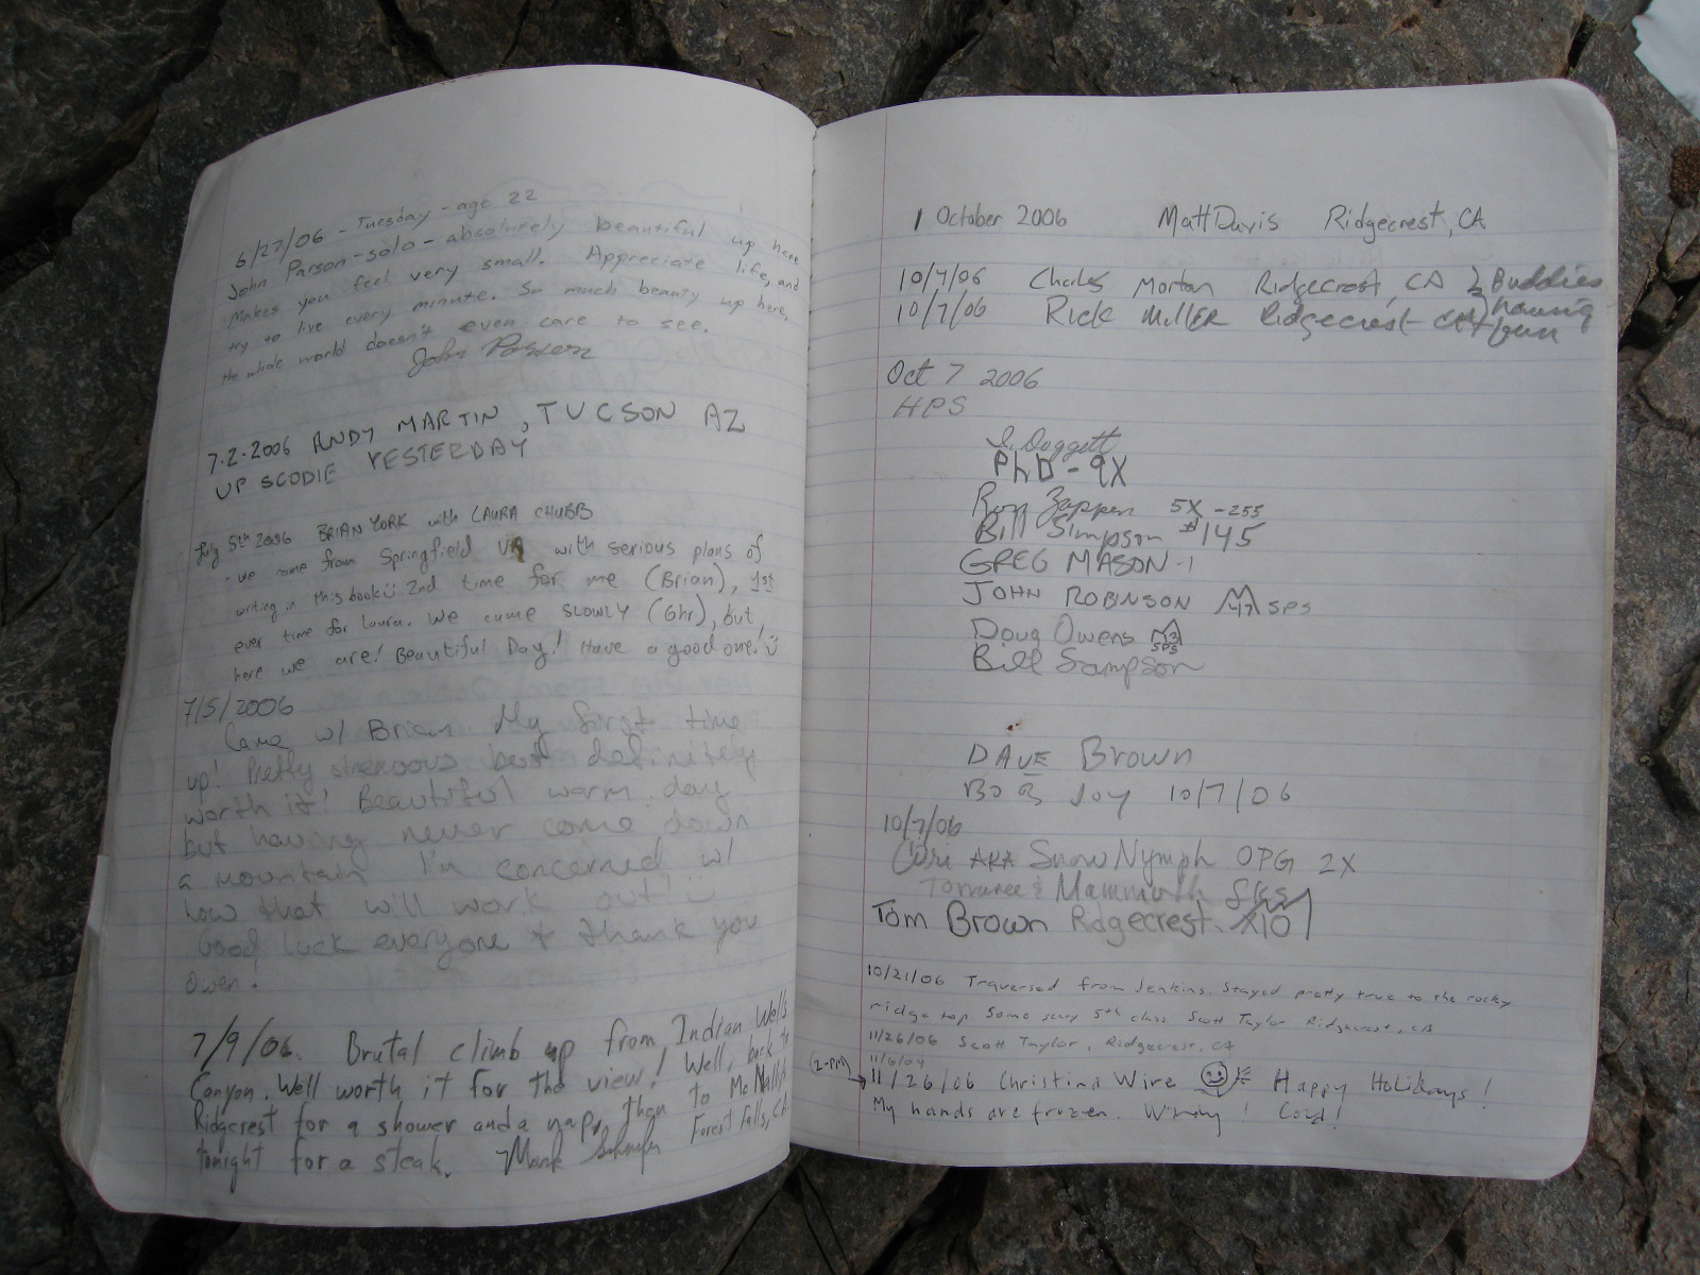 6/27/06 - Tuesday - age 22
John Parson - solo - absolutely beautiful up here
Makes you feel very small. Appreciate life, and
try to live every minute. So much beauty up here,
the whole world doesn't even care to see.
John Parson
7.2.2006 ANDY MARTIN, TUCSON AZ
UP SCODIE YESTERDAY
July 5th 2006 BRIAN YORK with LAURA CHUBB
- we come from Springfield VA with serious plans of
writing in this book :) 2nd time for me (Brian), 1st
ever time for Laura. We came SLOWLY (6hr), but,
here we are! Beautiful Day! Have a good one! :)
7/5/2006
Came w/ Brian My first time
up! Pretty strenuous but definitely
worth it! Beautiful warm day
but having never come down
a mountain I'm concerned w/
how that will work out! :)
Good luck everyone & thank you
Owen.
7/9/06. Brutal climb up from Indian Wells
Canyon. Well worth it for the view! Well, back to
Ridgecrest for a shower and a nap, than to McNally's
tonight for a steak. Mark Forest Falls, CA
1 October 2006 Matt Davis Ridgecrest, CA
10/7/06 Charles Morton Ridgecrest, CA } Buddies
10/7/06 Rick Miller Ridgecrest CA } having
fun
Oct 7 2006
HPS
J. Doggett
PhD - 9X
Ron Zappen 5X - 255
Bill Simpson #145
GREG MASON - 1
JOHN ROBINSON 47 SPS
Doug Owens M3 SPS
Bill Sampson
DAVE Brown
Bob Joy 10/7/06
10/7/06
AKA Snow Nymph OPG 2X
Torrance & Mammoth SKS
Tom Brown Ridgecrest. X10
10/21/06 Traversed from Jenkins. Stayed pretty true to the rocky
ridge top. Some scary 5th class. Scott Taylor Ridgecrest, CA
11/26/06 Scott Taylor, Ridgecrest, CA
11/6/04
(2-PM) → 11/26/06 Christina Wire Happy Holidays!
My hands are frozen. Windy! Cold!